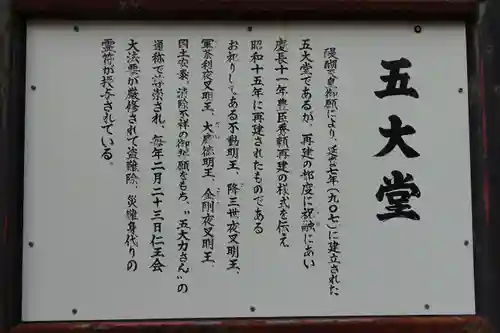 五大堂
醍醐天皇御願により、延喜七年(九〇七)に建立された
五大堂であるが、再建の都度に祝融にあい
慶長十一年豊臣秀頼再建の様式を伝え
昭和十五年に再建されたものである
お祀りしてある不動明王、降三世夜叉明王、
軍荼利夜叉明王、大威徳明王、金剛夜叉明王、
国土安泰、消除不祥の御誓願をもち、"五大力さん"の
通称で崇され、毎年二月二十三日仁王会
大法要が厳修されて盗難除、災難身代りの
霊符が授与されている。